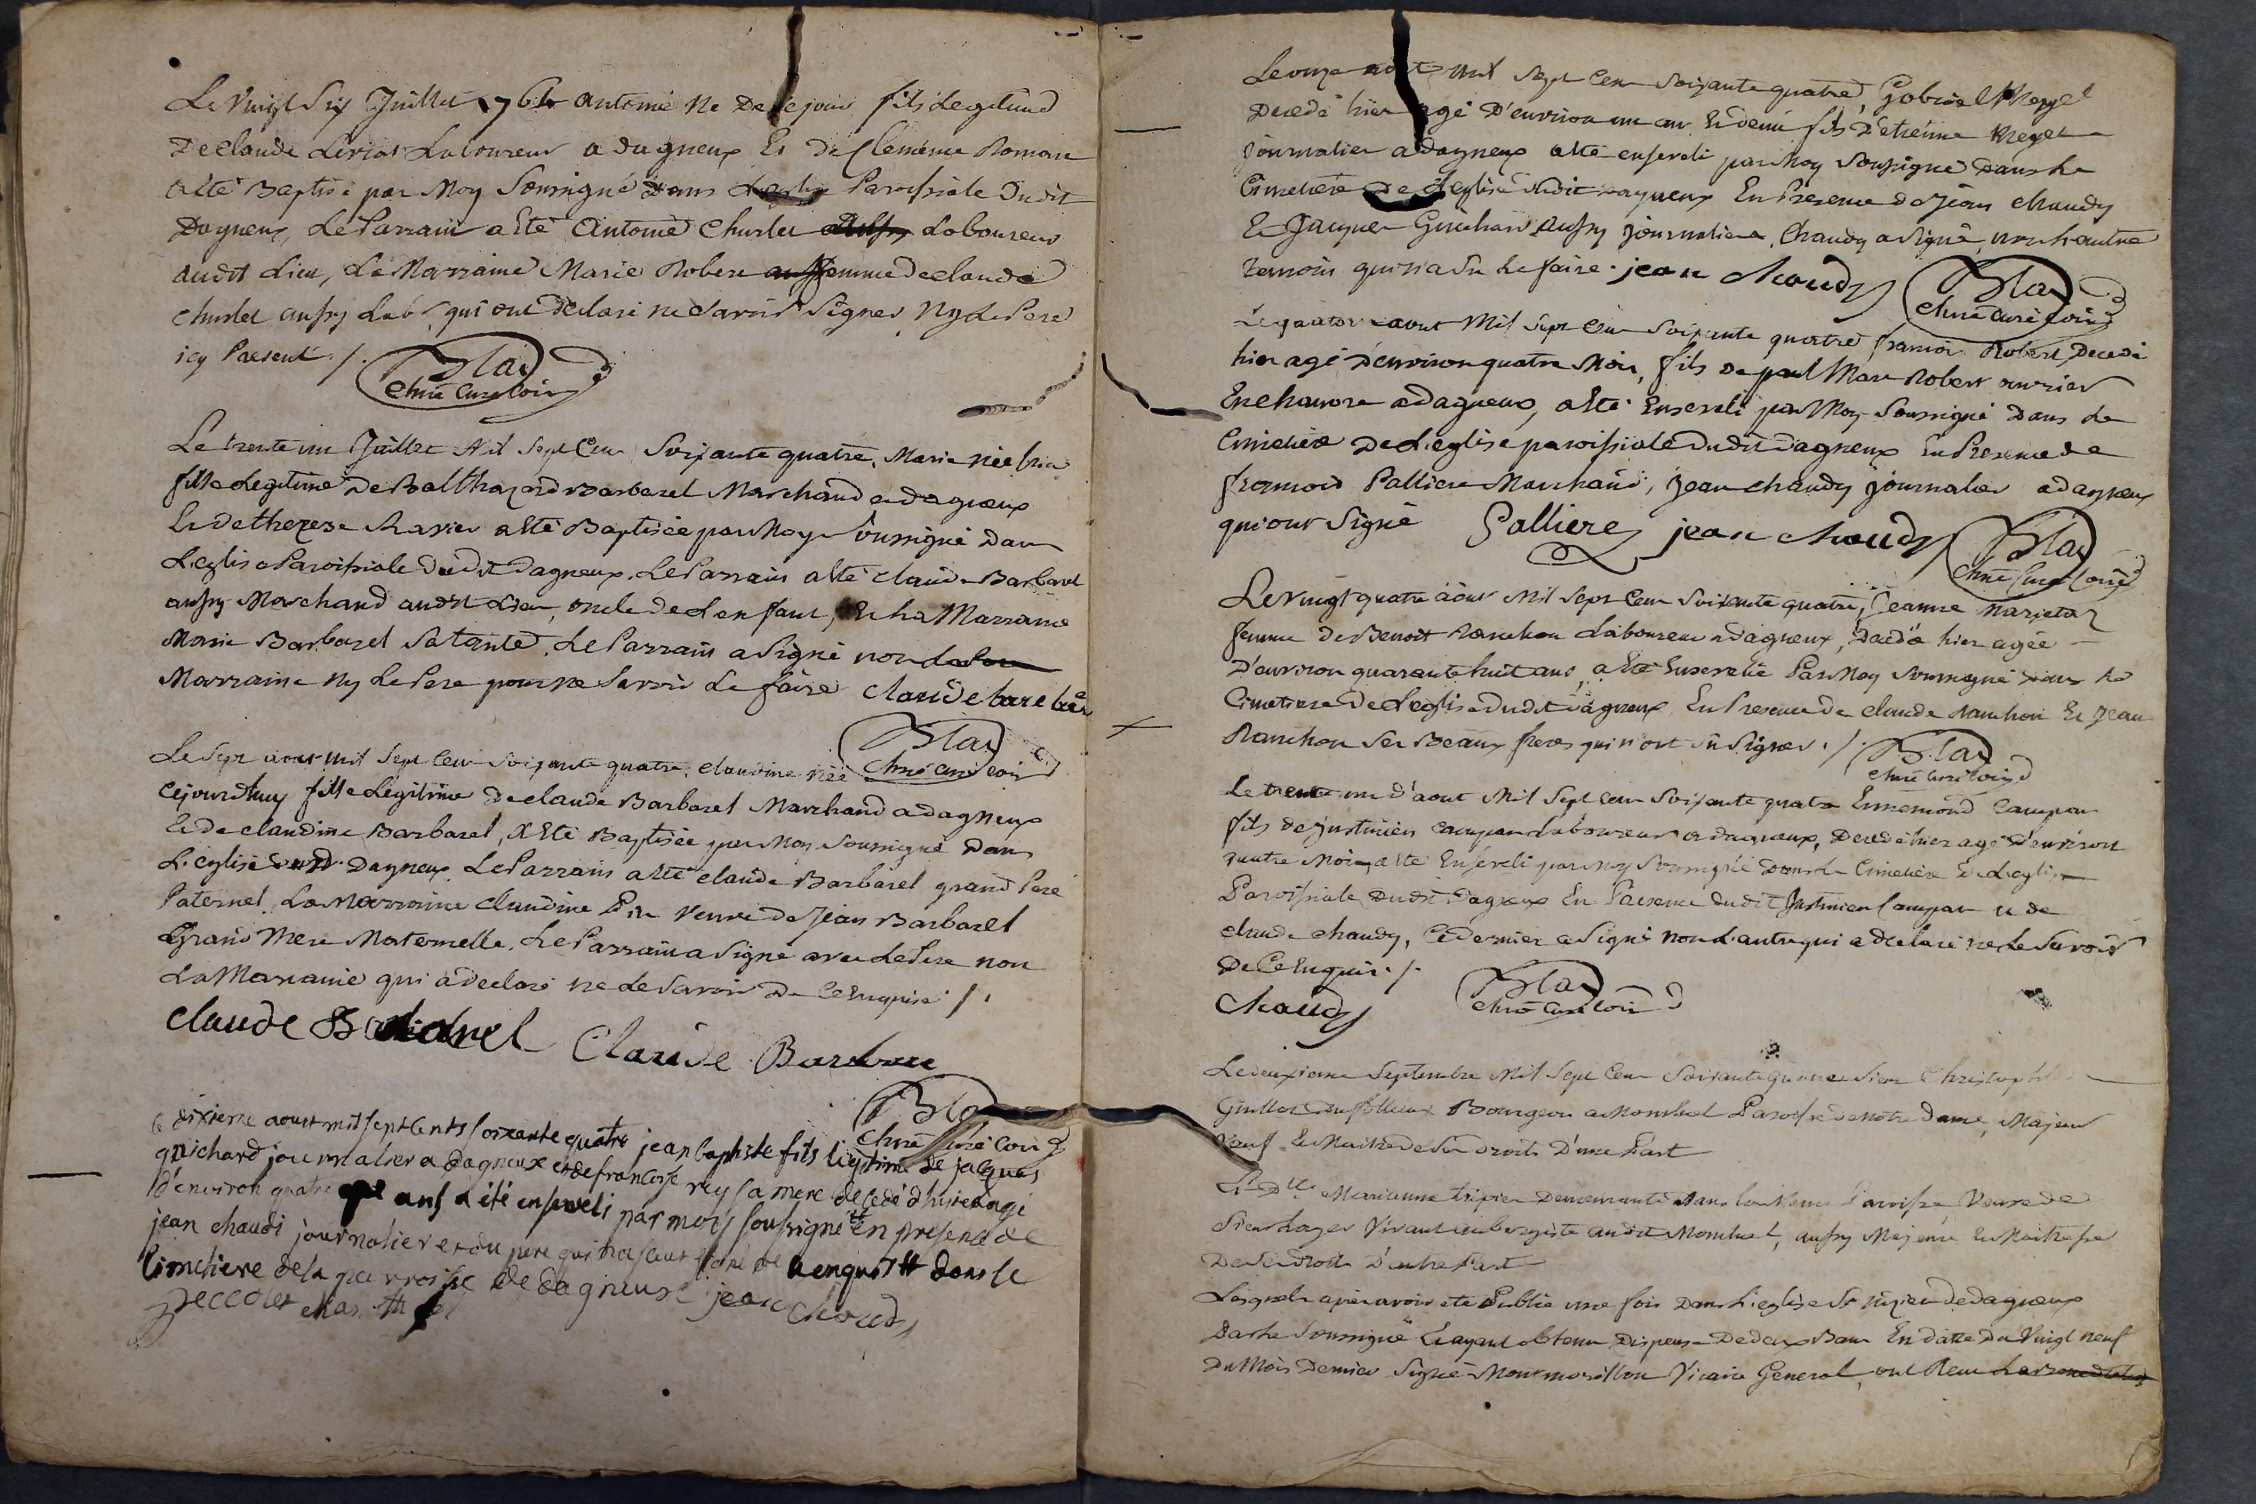 Le Vingt Six Juillet 1764 antoine Né De Ce jour fils Legitime
De Claude Laboureur a dagneux Et De Clemence Roman
a Eté Baptisé par Moy Soussigné Dans Leglise Paroissiale Dudit
Dagneux, Le Parrain a Eté Antoine Churlet Laboureur
audit Lieu, La Marraine Marie Robert femme De claude
Churlet aussy Lab. qui ont Declaré ne Savoir Signer Ny Le Pere
icy Present ./.
Blad
Chne Curé Coind
Le trente un Juillet Mil Sept Cent Soixante quatre, Marie née hier
fille Legitime De Balthazard Barbarel Marchand a dagneux
Et de therese Ravier a Eté Baptisée par Moy Soussigné Dans
L'eglise Paroissiale Dudit Dagneux. Le Parrain a Eté Claude Barbarel
aussy Marchand audit Lieu, oncle de L'enfant, Et La Marraine
Marie Barbarel Sa tante. Le Parrain a Signé non La
Marraine Ny Le Pere pour ne Savoir Le faire Claude
Blad
Chne Curé Coind
Le Sept aout Mil Sept Cent Soixante quatre, Claudine née
Cejourdhuy fille Legitime De Claude Barbarel Marchand a dagneux
Et De Claudine Barbarel, a Eté Baptisée par Moy Soussigné Dans
L'eglise Dudit Dagneux. Le Parrain a Eté Claude Barbarel grand Pere
Paternel La Marraine Claudine Veuve De Jean Barbarel
Grand Mere Maternelle. Le Parrain a Signé avec Le Pere non
La Marraine qui a Declaré ne Le Savoir De Ce Enquise ./.
Claude Barbarel Claude
Blad
Chne Curé Coind
le dixieme aoust mil sept cents soixante quatre jean baptiste fils legitime de jacques
guichard journalier a dagneux et de francoise rey sa mere decedé d'hier agé
d'environ quatre ans a été enseveli par moy soussigné en presence de
jean chaudi journalier et du pere qui na sceut signé de ce enquis dans le
cimetiere de la parroisse de dagneux jean chaudy
Le onze aout Mil Sept Cent Soixante quatre, Gabriel
Decedé hier agé D'environ un an Et demi fils D'etienne
journalier a dagneux a Eté enseveli par Moy Soussigné Dans Le
Cimetiere De L'eglise dudit Dagneux En Presence de Jean Chaudy
Et Jacques Guichard aussy journalier, Chaudy a Signé, non L'autre
temoin qui n'a Su Le faire. jean chaudy
Blad
Chne Curé Coind
Le quatorze aout Mil Sept Cent Soixante quatre francois Robert Decedé
hier agé D'environ quatre Mois, fils De paul Marc Robert ouvrier
En chanvre a dagneux, a Eté Enseveli par Moy Soussigné Dans Le
Cimetiere De L'eglise paroissiale Dudit Dagneux En Presence de
francois Palliere Marchand, Jean chaudy journalier a dagneux
qui ont Signé Palliere jean chaudy
Blad
Chne Curé Coind
Le Vingt quatre aout Mil Sept Cent Soixante quatre, Jeanne
femme De Benoit Ranchon Laboureur a dagneux, Decedée hier agée
D'environ quarante huit ans, a Eté Ensevelie Par Moy Soussigné Dans Le
Cimetiere De L'eglise Dudit Dagneux En Presence de Claude Ranchon Et Jean
Ranchon Ses Beaux freres qui n'ont Sû Signer ./.
Blad
Chne Curé Coind
Le trente un d'aout Mil Sept Cent Soixante quatre Ennemond Campan
fils de Justinien Campan Laboureur a dagneux, Decedé hier agé D'environ
quatre Mois, a Eté Enseveli par Moy Soussigné Dans Le Cimetiere De L'eglise
Paroissiale Dudit Dagneux En Presence dudit Justinien Campan et de
claude chaudy, Ce dernier a Signé non L'autre qui a declaré ne Le Savoir
De Ce Enquis ./.
Chaudy
Blad
Chne Curé Coind
Le deuxieme Septembre Mil Sept Cent Soixante quatre Sieur Christophle
Bourgeois a Montluel Paroisse de Notre dame, Majeur
Veuf Et Maitre de Ses Droits D'une Part
Et Dlle Marianne tripier Demeurante Dans La Meme Paroisse Veuve de
Sieur Vivant aubergiste audit Montluel, aussy Majeure Et Maitresse
De Ses Droits D'autre Part
Lesquels apres avoir eté Publié une fois Dans L'eglise St de dagneux
Par Le Soussigné Et ayant obtenu Dispense De deux Bans En Datte Du Vingt neuf
Du Mois Dernier Signé Montmorillon Vicaire General, ont Recu